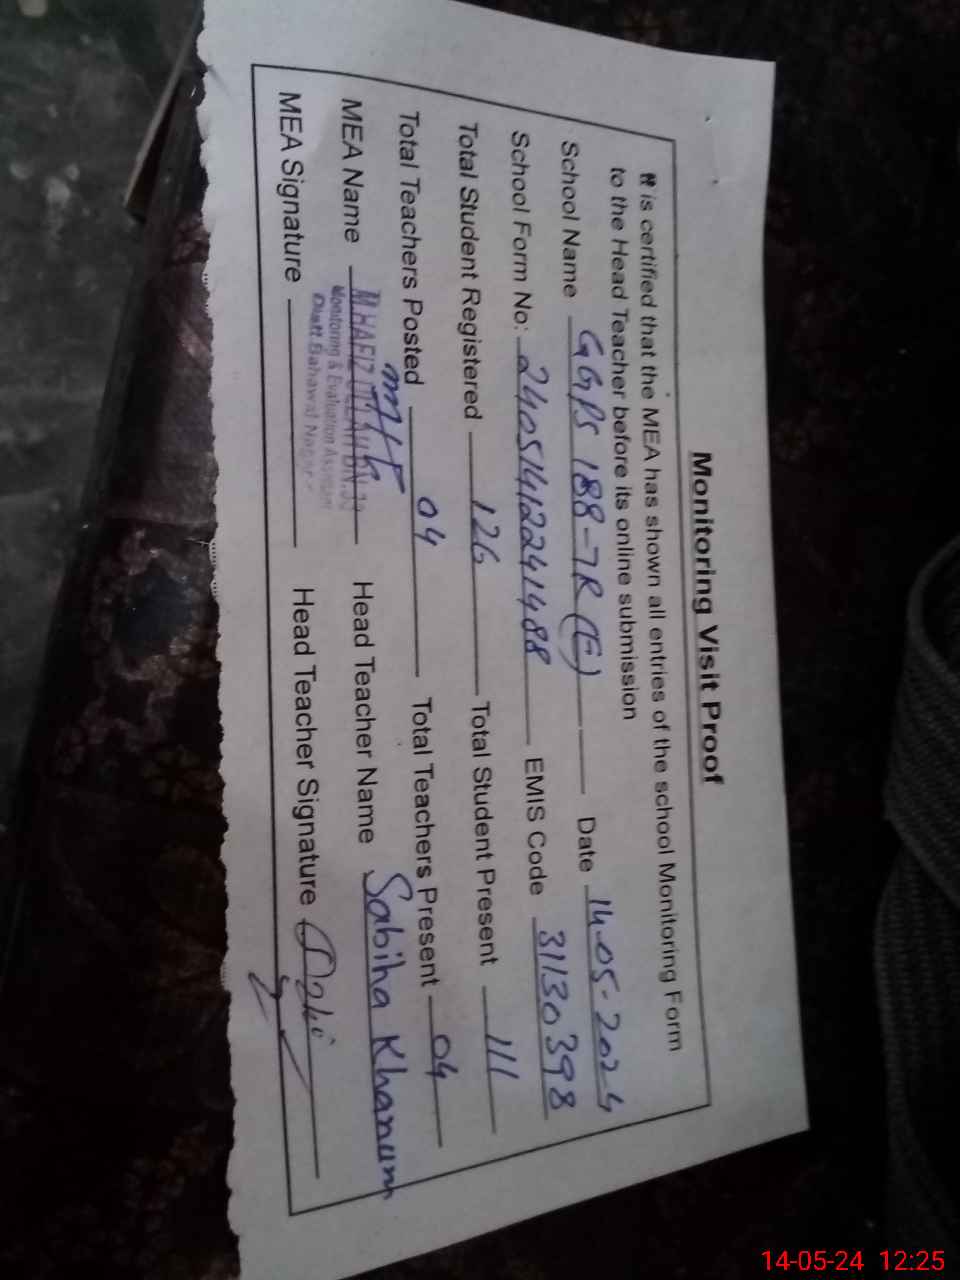 Monitoring Visit Proof
It is certified that the MEA has shown all entries of the school Monitoring Form
to the Head Teacher before its online submission
School Name GGPS 188-7R (E) Date 14-05-2024
School Form No: 24051412241488 EMIS Code 31130398
Total Student Registered 126 Total Student Present 111
Total Teachers Posted 04 Total Teachers Present 04
MEA Name M.HAFIZ Head Teacher Name Sabiha Khanum
Monitoring & Evaluation Assistant
Distt Bahawal Nagar
MEA Signature Head Teacher Signature
14-05-24 12:25